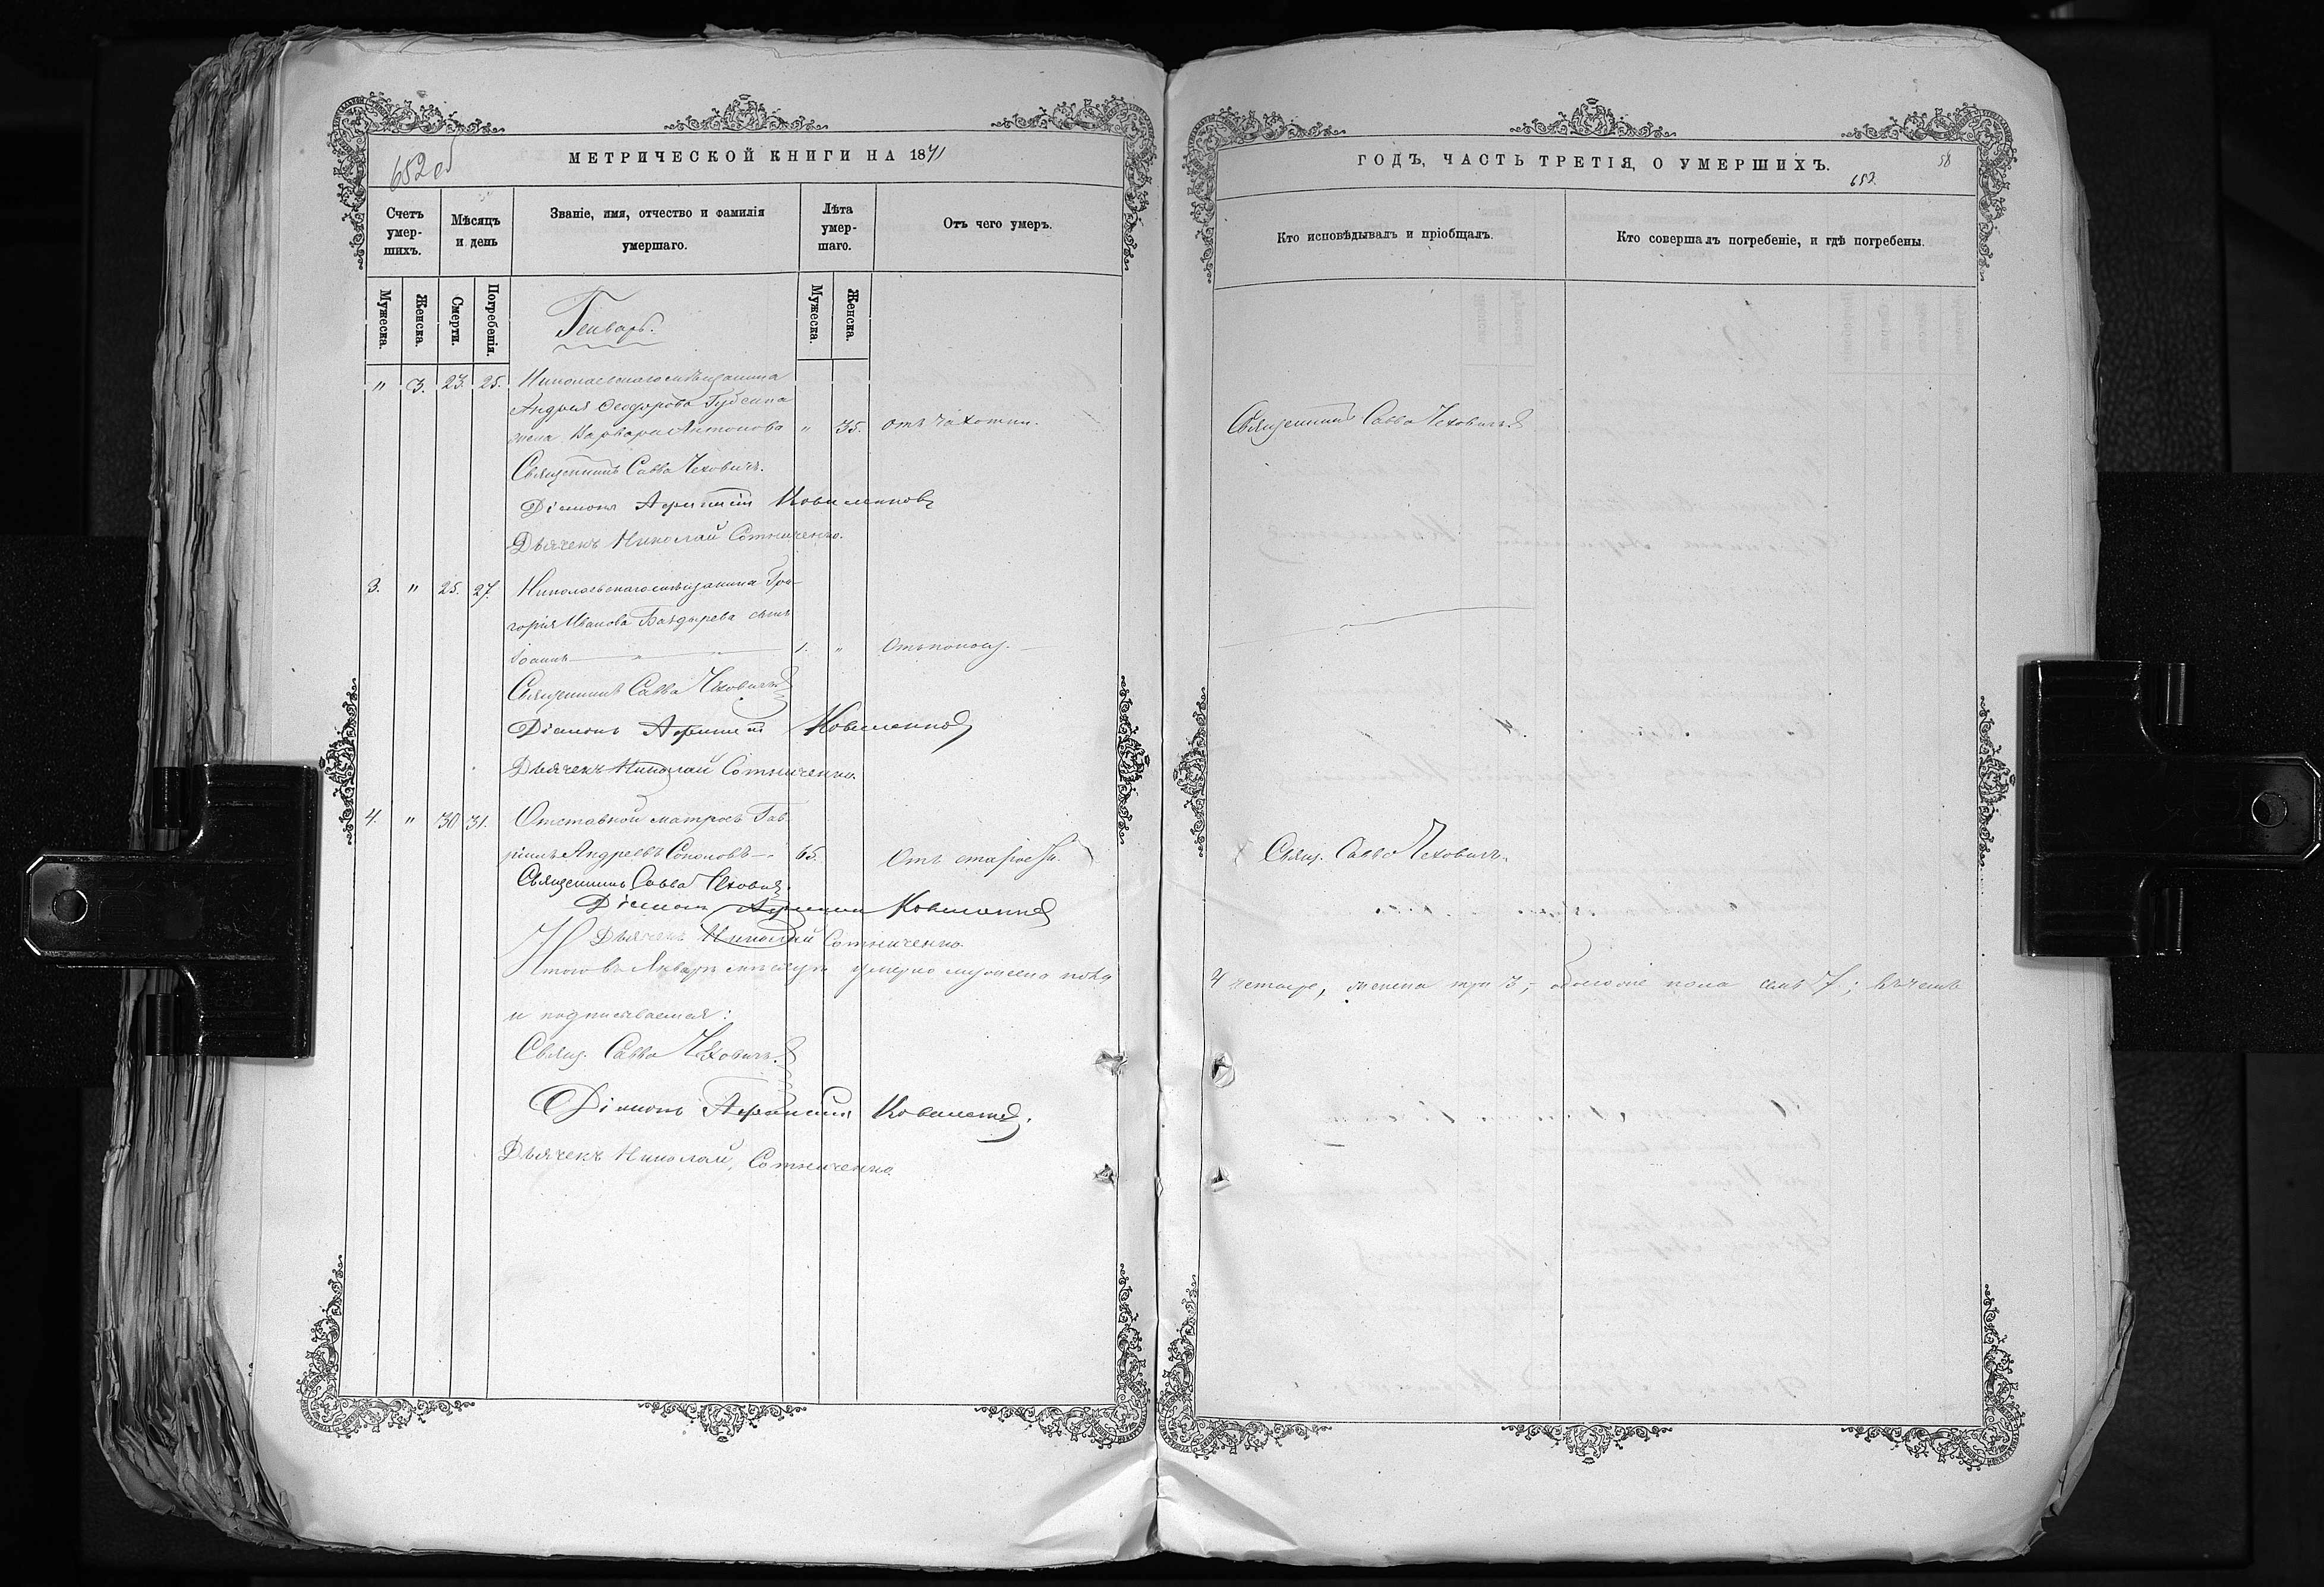 652 об
МЕТРИЧЕСКОЙ КНИГИ НА 1871
Счетъ умер-шихъ.
Мѣсяцъ и день
Званіе, имя, отчество и фамилія умершаго.
Лѣта умер-шаго.
Отъ чего умеръ.
Мужеска.
Женска.
Смерти.
Погребенія.
Мужеска.
Женска.
Генварь.
" 3. 23. 25. Николаевскаго мѣщанина
Андрея Ѳеодорова
жена Варвара Антонова " 35. отъ чахотки.
Священникъ Савва Чеховичъ.
Діаконъ
Дьячекъ Николай Сотниченко.
3. " 25. 27. Николаевскаго мѣщанина Гри-
горія Иванова Баздырева сынъ
Іоаннъ — " — " — 1. "
Священникъ Савва Чеховичъ
Діаконъ
Дьячекъ Николай Сотниченко.
4. " 30 31. Отставной матросъ Гав-
ріилъ Андреевъ Соколовъ — 65. Отъ старости.
Священникъ Савва Чеховичъ.
Діаконъ
Дьячекъ Николай Сотниченко.
Итого въ Январѣ мѣсяцѣ умерло мужеска пола
и подписываемся:
Свящ. Савва Чеховичъ.
Діаконъ
Дьячекъ Николай Сотниченко
ГОДЪ, ЧАСТЬ ТРЕТІЯ, О УМЕРШИХЪ.
653.
58
Кто исповѣдывалъ и пріобщалъ.
Кто совершалъ погребеніе, и гдѣ погребены.
Священникъ Савва Чеховичъ
Свящ. Савва Чеховичъ.
4 четыре, женска три 3, обоего пола семь 7; въ чемъ